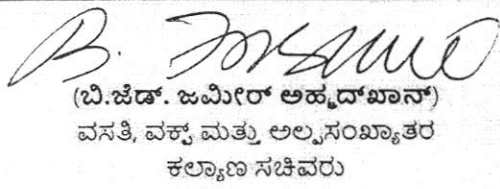 (ಬಿ.ಜೆಡ್. ಜಮೀರ್ ಅಹ್ಮದ್‌ಖಾನ್)
ವಸತಿ, ವಕ್ಫ್ ಮತ್ತು ಅಲ್ಪಸಂಖ್ಯಾತರ
ಕಲ್ಯಾಣ ಸಚಿವರು